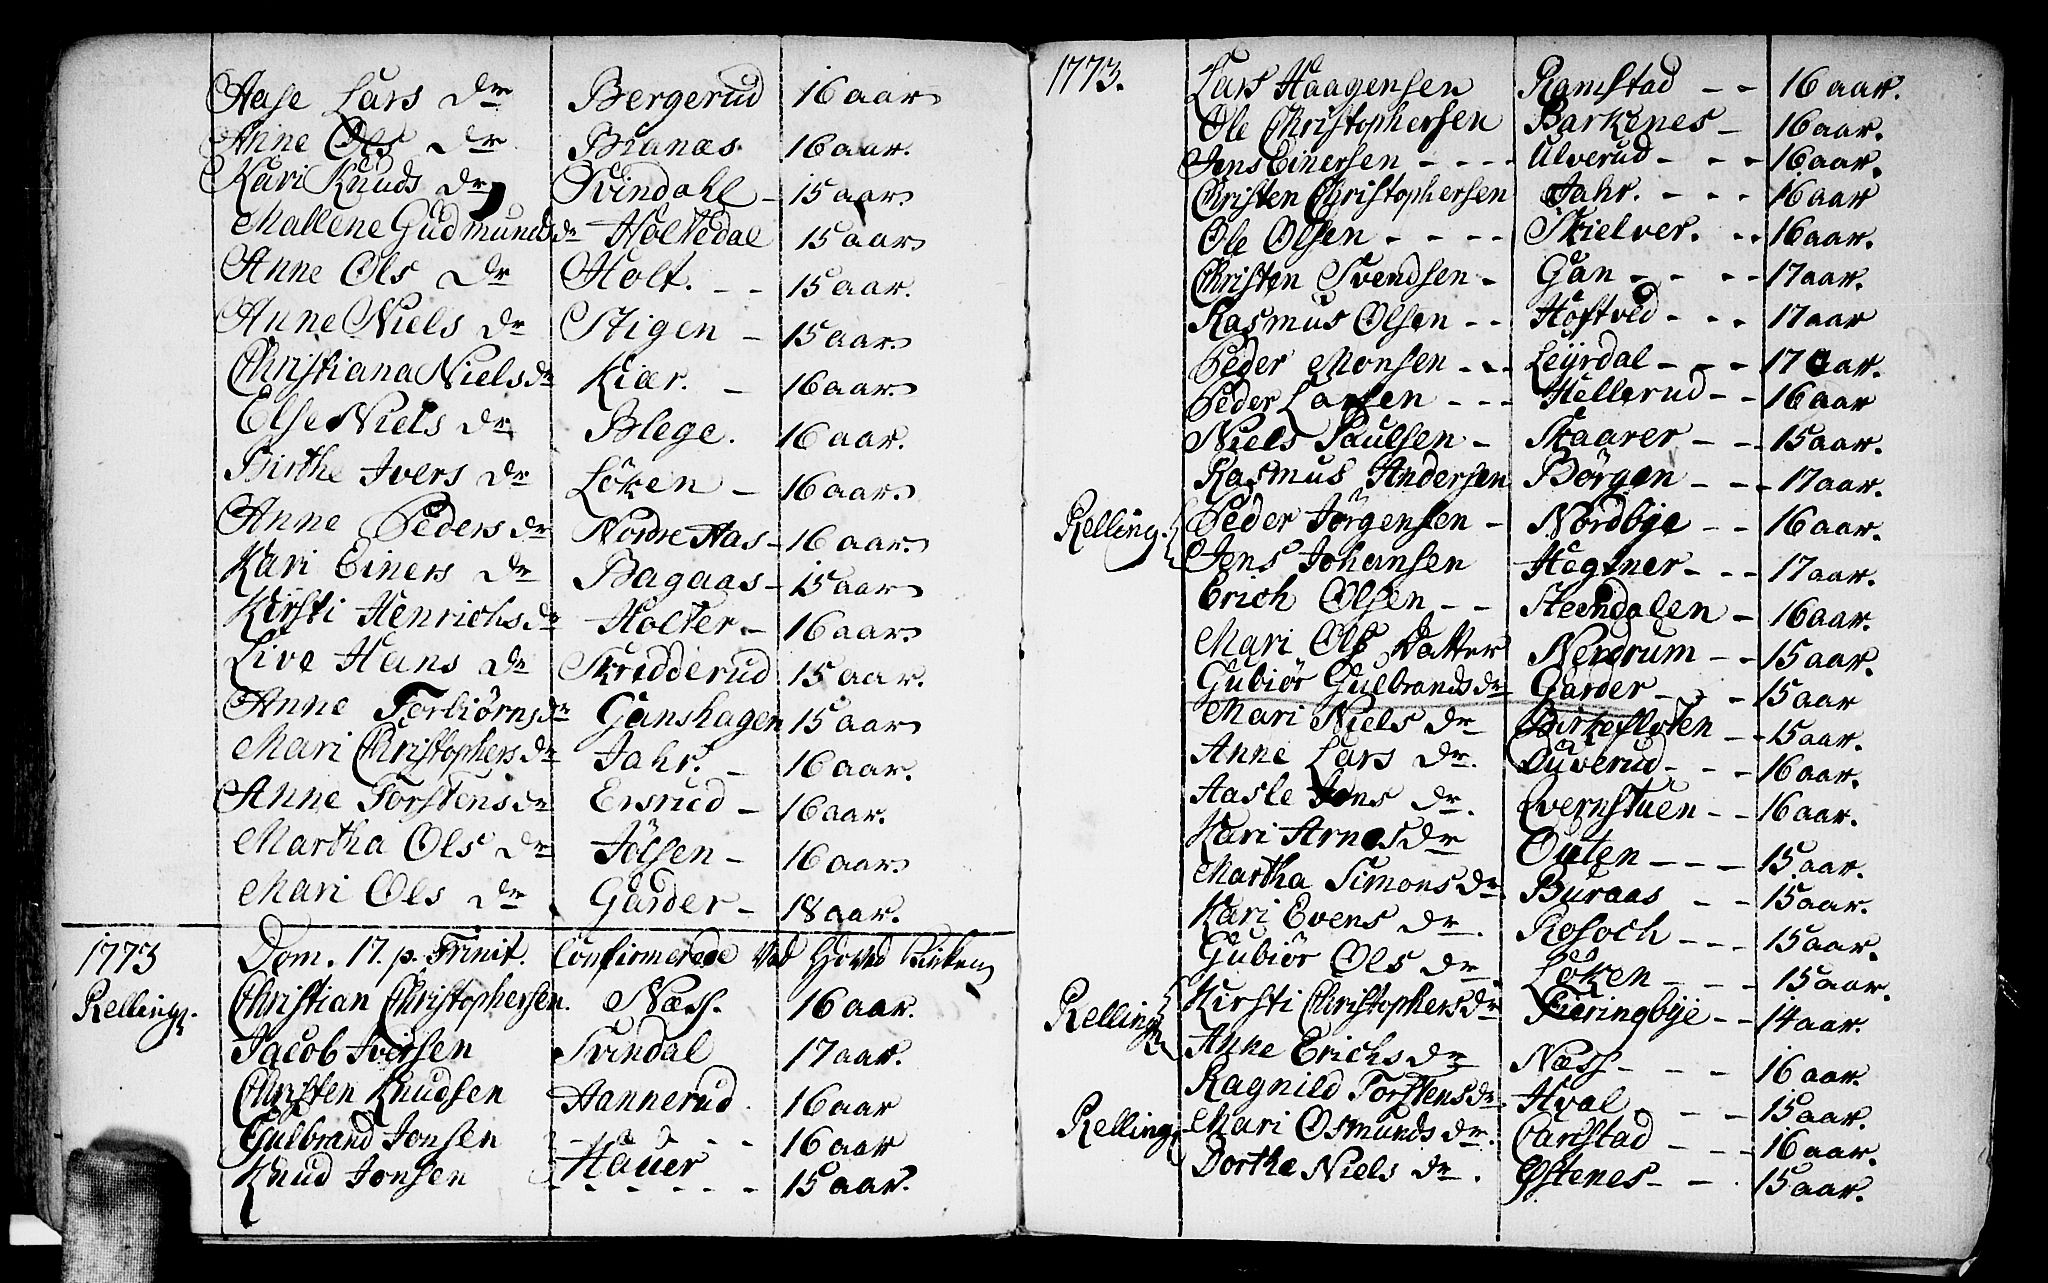 Aase Lars dr Bergerud 16 aar
Anne Ols dr Bianæs. 16 aar.
Kari Knuds dr Svindahl - 15 aar
Mallene Gudmunds dr Holtedal 15 aar
Anne Ols dr Holt. - - 15 aar.
Anne Niels dr Stigen - 15 aar.
Christiana Niels dr Kiær. - 16 aar.
Else Niels dr Blege. 16 aar.
Birthe Ivers dr Löken - 16 aar.
Anne Peders dr Nordre Aas - 16 aar.
Kari Einers dr Bagaas - 15 aar
Kirsti Henrichs dr Holter - 16 aar.
Live Hans dr Skridderud 15 aar.
Anne Torbiörns dr Ganshagen 15 aar
Mari Christophers dr Jahr. - 16 aar.
Anne Torstens dr Ersrud - 16 aar.
Martha Ols dr Jölsen - 16 aar.
Mari Ols dr Garder - 18 aar.
1773 Dom. 17. p. Trinit. Confirmerede Ved Hoved Kirken
Relling. Christian Christophersen. Næss. 16 aar.
Jacob Iversen Svindal 17 aar.
Christen Knudsen Hannerud 16 aar
Gulbrand Jonsen - - - - 16 aar
Knud Jonsen Hauer 15 aar.
1773. Lars Haagensen Ramstad - - 16 aar.
Ole Christophersen Barkenes - 16 aar.
Jens Einersen - - - - Ulverud - - - 16 aar.
Christen Christophersen Jahr. - - - 16 aar
Ole Olsen - - - - Skielver. - - 16 aar.
Christen Svendsen - Gan - - - - 17 aar.
Rasmus Olsen - - Hoftved - - - 17 aar
Peder Monsen - - - Leyrdal - - - 17 aar.
Peder Larsen - - - Hellerud - - 16 aar
Niels Paulsen - Skaarer - - 15 aar.
Rasmus Andersen Börgen - - - 17 aar.
Relling. Peder Jörgensen - Nordbye - - 16 aar.
Jens Johansen Hegtner - - - 17 aar.
Erich Olsen - - Steendalen - 16 aar.
Mari Ols Datter Nerdrum - - 15 aar.
Gubiör Gulbrands dr Garder - - - 15 aar
Mari Niels dr Birkefloten - - 15 aar.
Anne Lars dr. Duverud - - - 16 aar.
Aasle Jons dr. Qvernstuen - - 16 aar.
Kari Arnes dr Outen - - - - 15 aar.
Martha Simons dr. Buraas - - 15 aar.
Kari Evens dr. Rosoch - - - 15 aar.
Gubiör Ols dr Löken - - - 15 aar.
Relling Kirsti Christophers dr Fieringbye - - 14 aar.
Anne Erichs dr Næss - - - - 16 aar.
Ragnild Torstens dr. Hval - - 15 aar.
Relling Mari Osmunds dr. Carlstad - - - 16 aar.
Dorthe Niels dr. Østenes - - 15 aar.